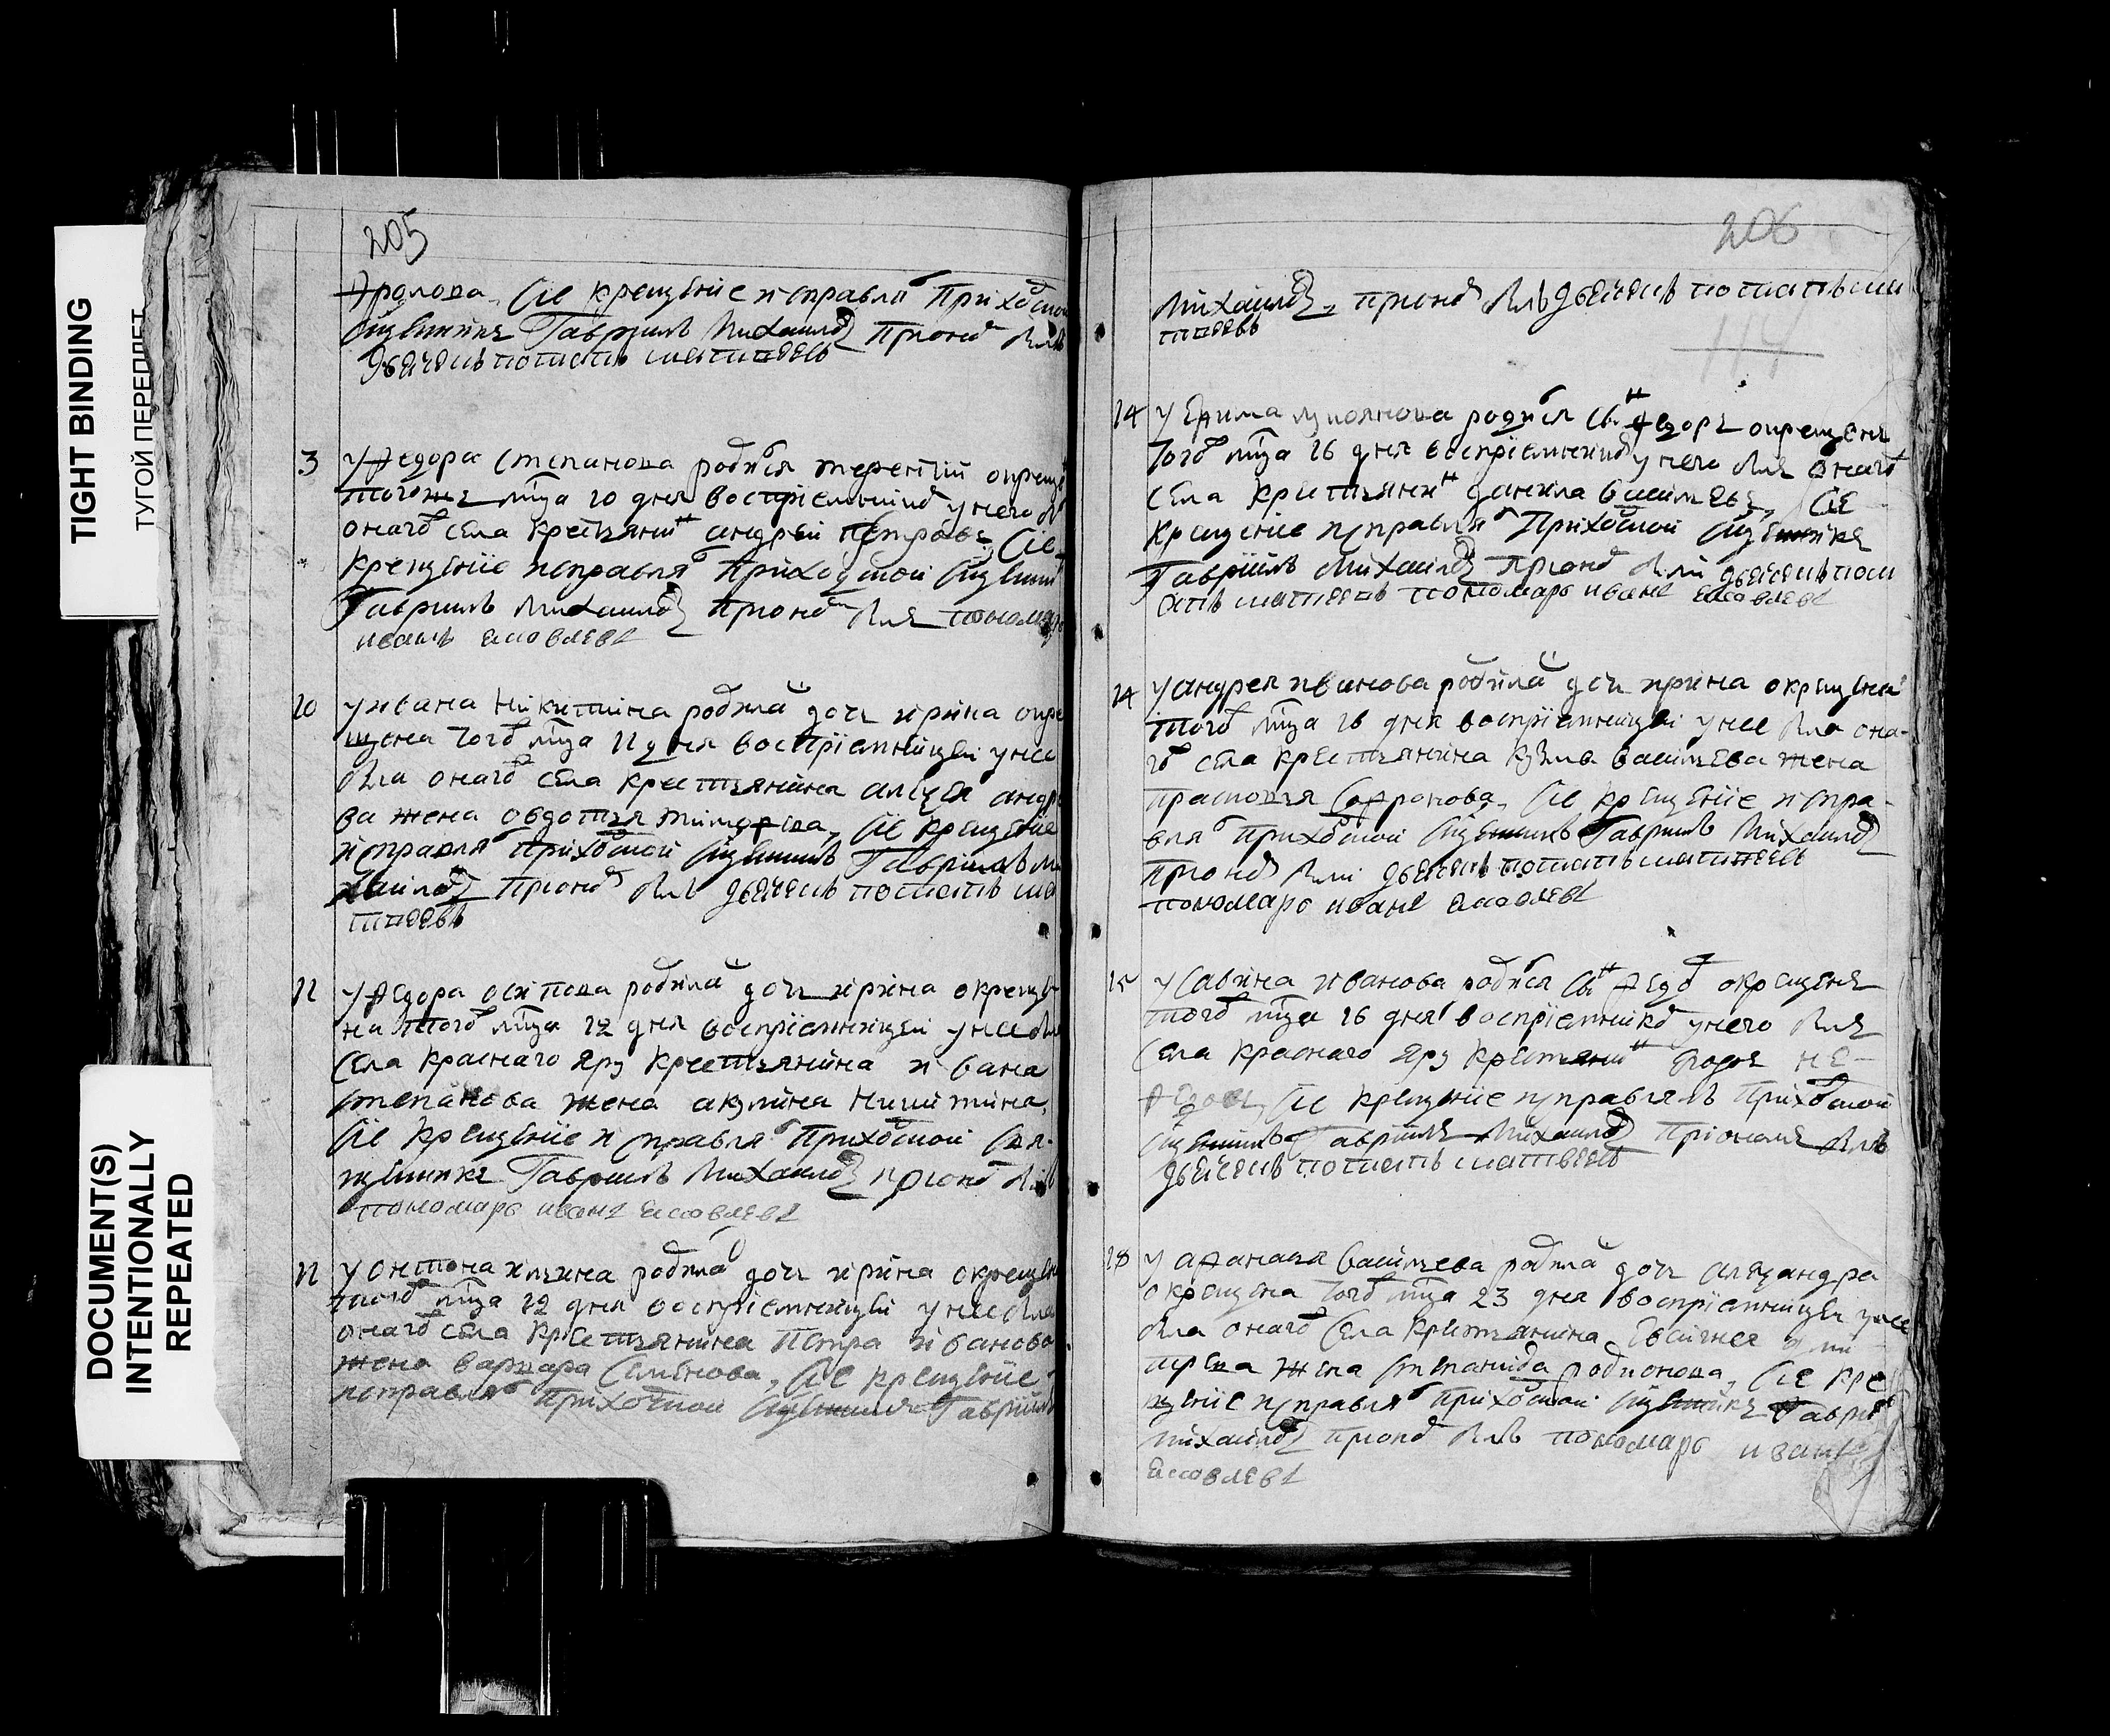 TIGHT BINDING
ТУГОЙ ПЕРЕПЛЕТ
DOCUMENT(S)
INTENTIONALLY
REPEATED
205
Фролова, Сïе крещенïе исправлялъ приходской
священникъ Гаврïилъ Михаиловъ при ономъ былъ
дьячекъ потапъ матвеевъ
3 У Федора степанова родился терентïй окреще
тогожъ мца 10 дня воспрïемникомъ у него бы
оного села крестьянинъ андрей петровъ, Сïе
крещенïе исправлялъ приходской священни
Гаврïилъ Михаиловъ при ономъ былъ пономарь
иванъ еаковлевъ
10 У ивана никитина родилась дочь ирина окре
щена того мца 11 дня воспрïемницей у нее
была оного села крестьянина алѯея андре
ва жена овдотья тимофеева, Сïе крещенïе
исправлялъ приходской священникъ Гаврïилъ ми
хаиловъ при ономъ былъ дьячекъ потапъ ма
твеевъ
11 У Федора осипова родилась дочь ирина окреще
на того мца 12 дня воспрïемницей у нее была
села красного яру крестьянина ивана
степанова жена акулина никитина,
Сïе крещенïе исправлялъ приходской свя-
щенникъ Гаврïилъ Михаиловъ при ономъ былъ
пономарь иванъ еаковлевъ
11 У онтона ильина родилась дочь ирина окрещен
того мца 12 дня воспрïемницей у нее была
оного села крестьянина петра иванова
жена варвара семенова, Сïе крещенïе
исправлялъ приходской священникъ Гаврïилъ
206
Михаиловъ, при ономъ былъ дьячекъ потапъ ма
твеевъ
114
14 У Ефима родился сынъ Федоръ окрещенъ
того мца 16 дня воспрïемникомъ у него былъ оного
села крестьянинъ данила васильевъ, Сïе
крещенïе исправлялъ приходской священникъ
Гаврïилъ Михаиловъ при ономъ были дьячекъ пот
апъ матвеевъ пономарь иванъ еаковлевъ
14 У андрея иванова родилась дочь ирина окрещена
того мца 16 дня воспрïемницей у нее была она-
го села крестьянина кузмы васильева жена
прасковья софронова, Сïе крещенïе испра-
влялъ приходской священникъ Гаврïилъ Михаиловъ
при ономъ были дьячекъ потапъ матвеевъ
пономарь иванъ еаковлевъ
15 У савина иванова родился сынъ Федоръ окрещенъ
того мца 16 дня воспрïемникомъ у него былъ
села красного яру крестьянинъ не-
Сïе крещенïе исправлялъ приходской
священникъ Гаврïилъ Михаиловъ при ономъ былъ
дьячекъ потапъ матвеевъ
18 У афанасья васильева родилась дочь алеѯандра
окрещена того мца 23 дня воспрïемницей у нее
была оного села крестьянина евсигнея дми
трева жена степанида родионова, Сïе кре
щенïе исправлялъ приходской священникъ Гаврïилъ
Михаиловъ при ономъ былъ пономарь иванъ
еаковлевъ